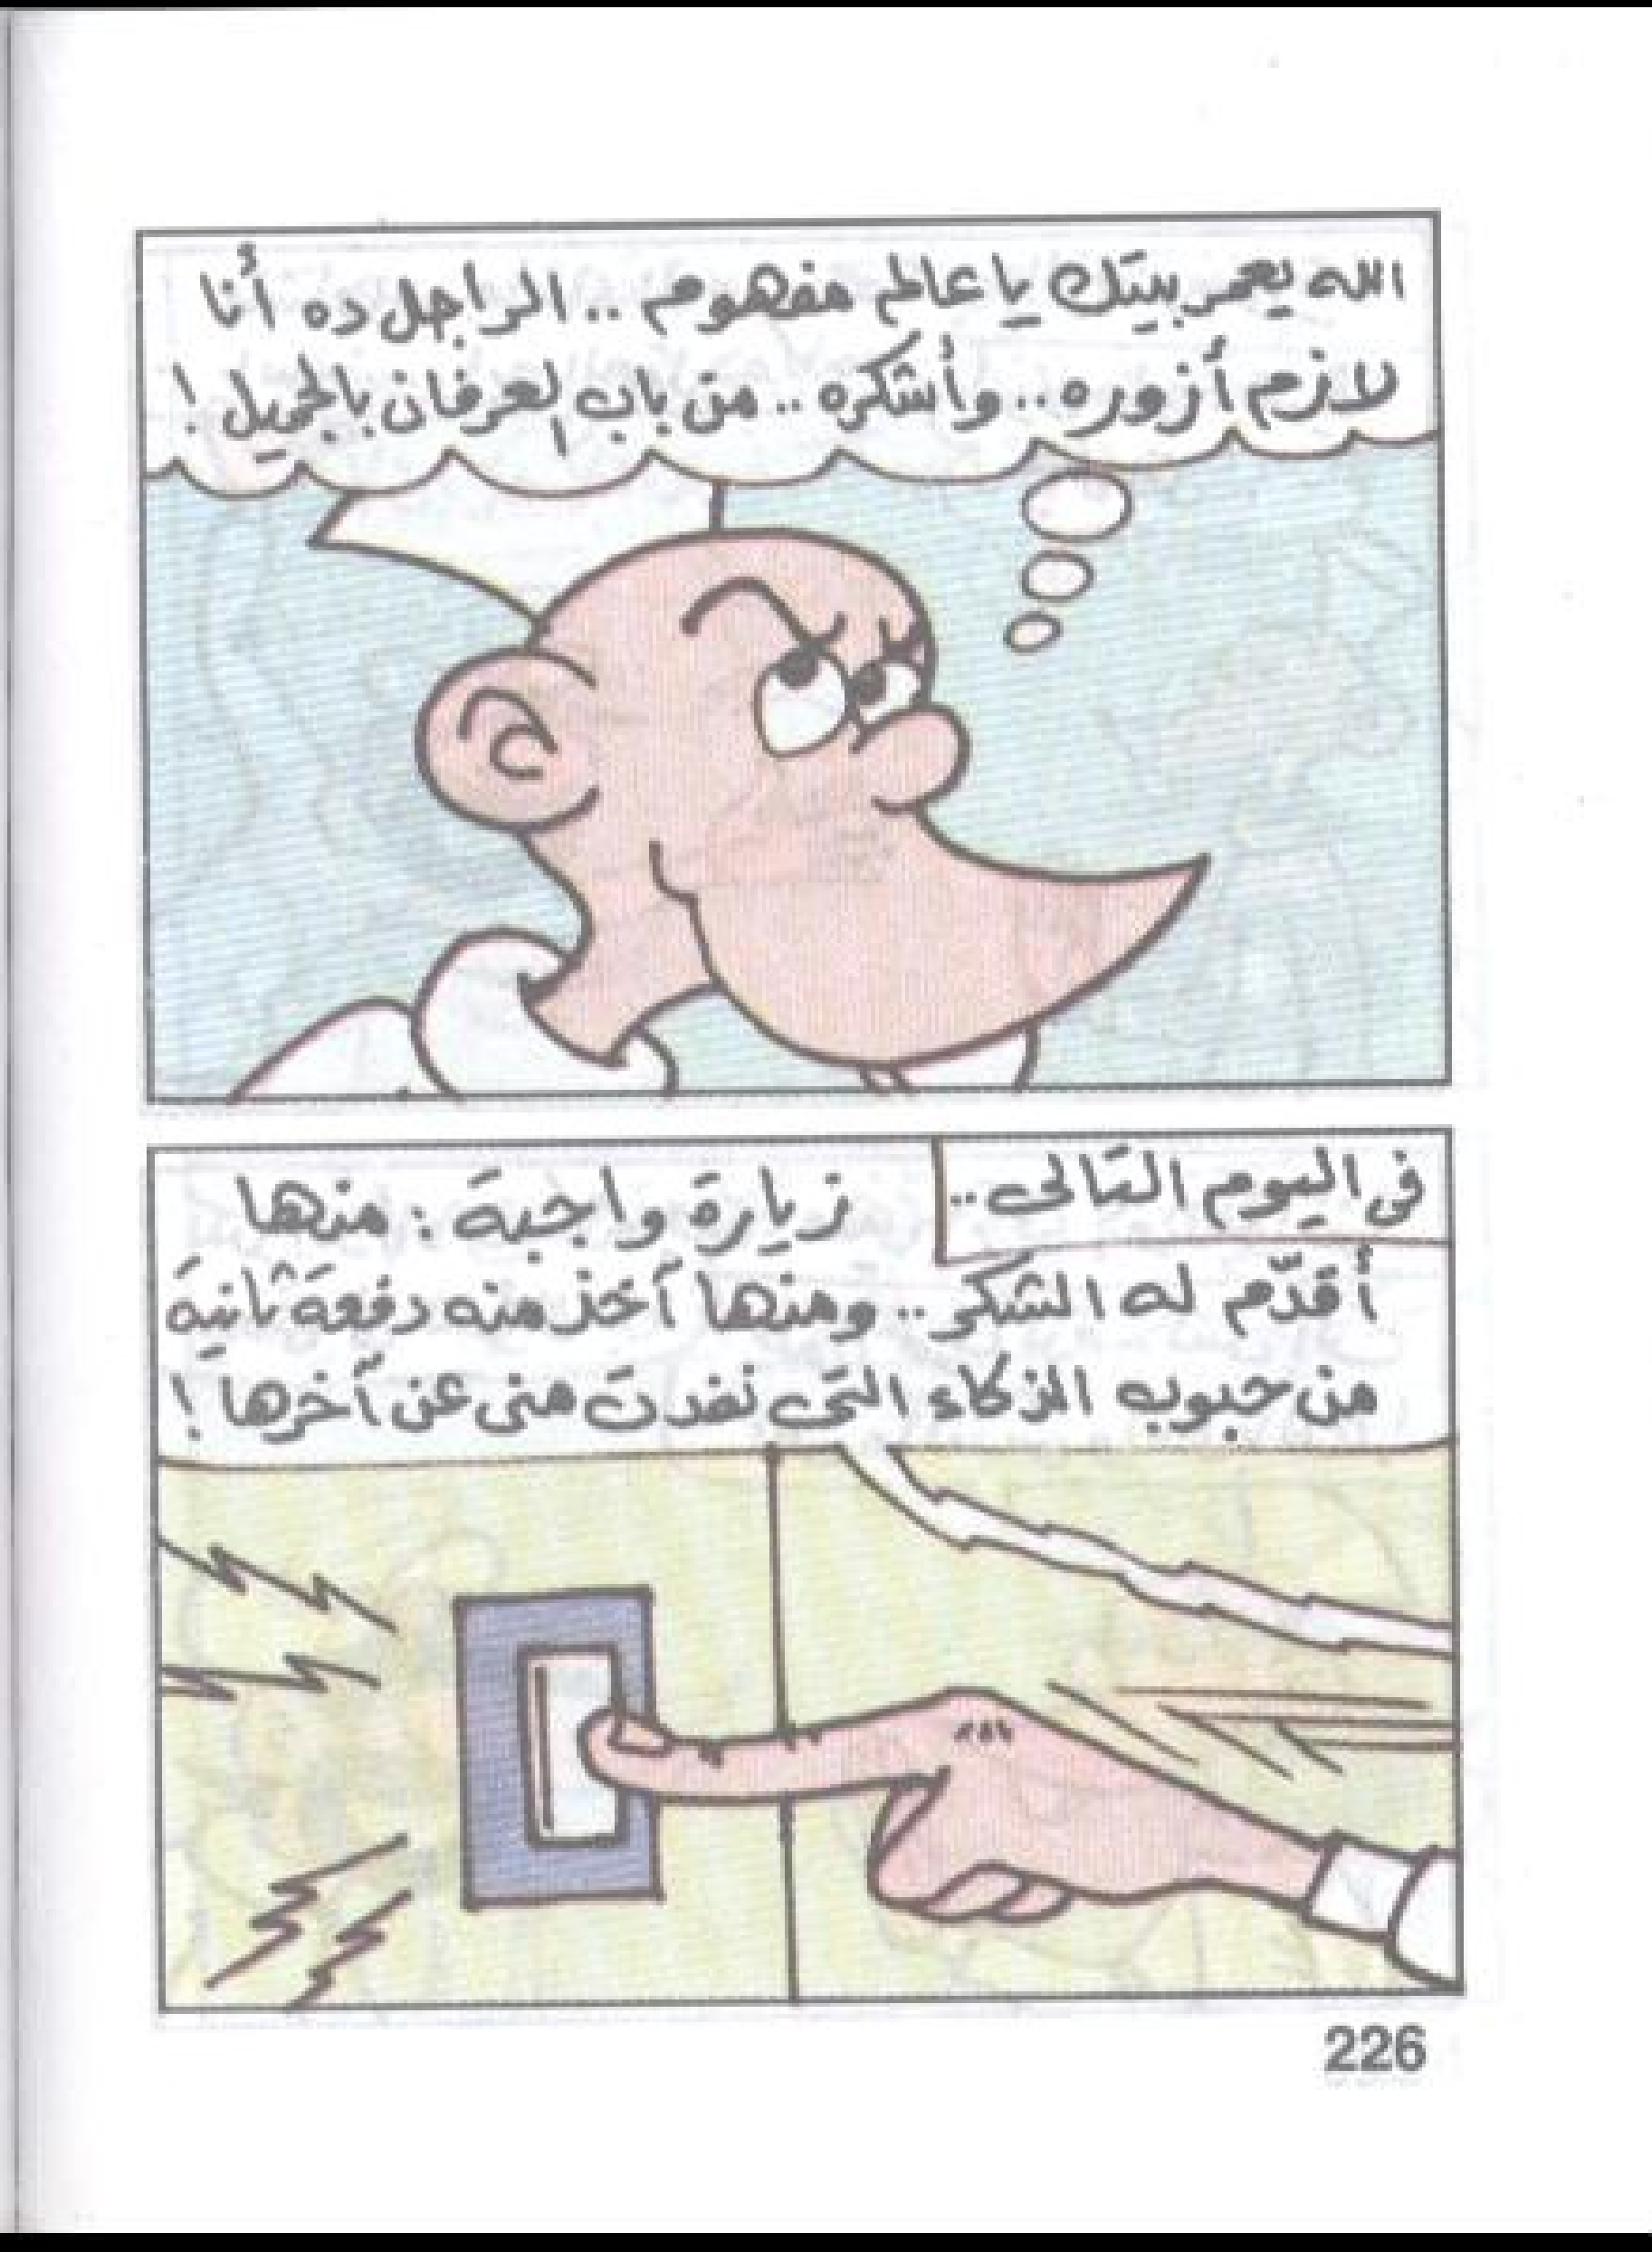 الله يعمر بيتك يا عالم مفهوم .. الراجل ده أنا
لازم أزوره .. وأشكره .. من باب العرفان بالجميل !
فى اليوم التالى ..
زيارة واجبة : منها
أقدّم له الشكر .. ومنها آخذ منه دفعة ثانية
من حبوب الذكاء التى نفدت منى عن آخرها !
226